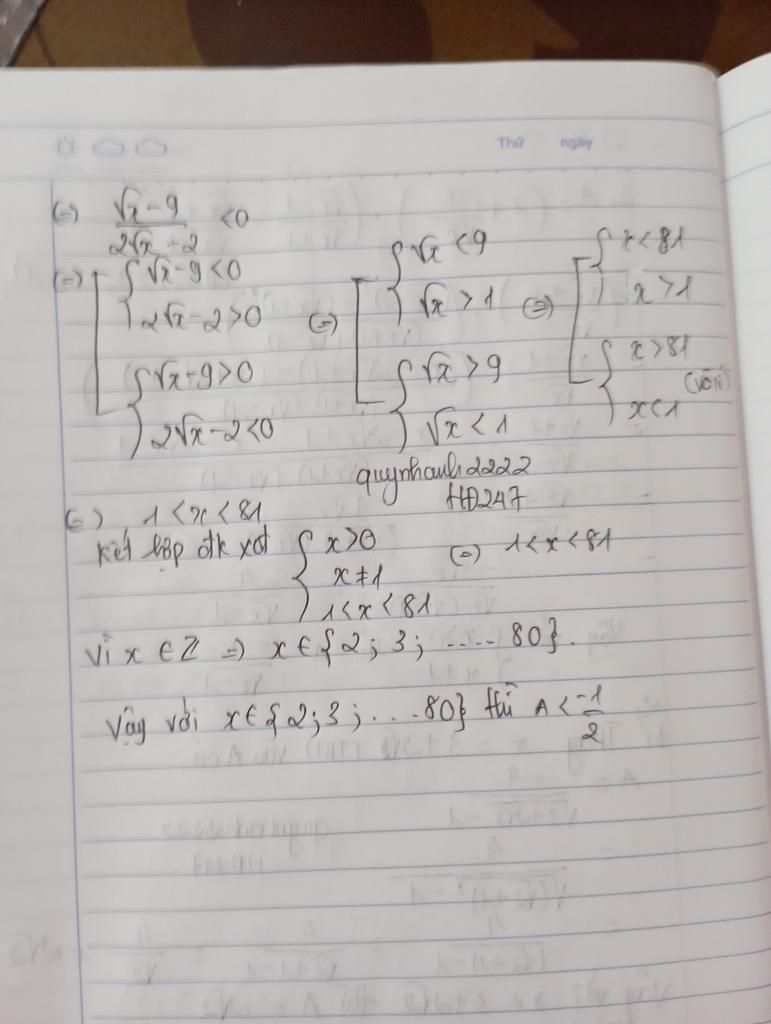 Thứ ngày
(=) √x - 9 / 2√x - 2 < 0
(=) [ { √x - 9 < 0 (=) [ { √x < 9 (=) [ { x < 81
2√x - 2 > 0 √x > 1 x > 1
{ √x - 9 > 0 { √x > 9 { x > 81
2√x - 2 < 0 √x < 1 x < 1 (vô lí)
quynhanh2222
HĐ247
(=) 1 < x < 81
kết hợp đk xđ { x > 0 (=) 1 < x < 81
x ≠ 1
1 < x < 81
Vì x ∈ Z => x ∈ {2; 3; ..... 80}.
Vậy với x ∈ {2; 3; ... 80} thì A < -1/2